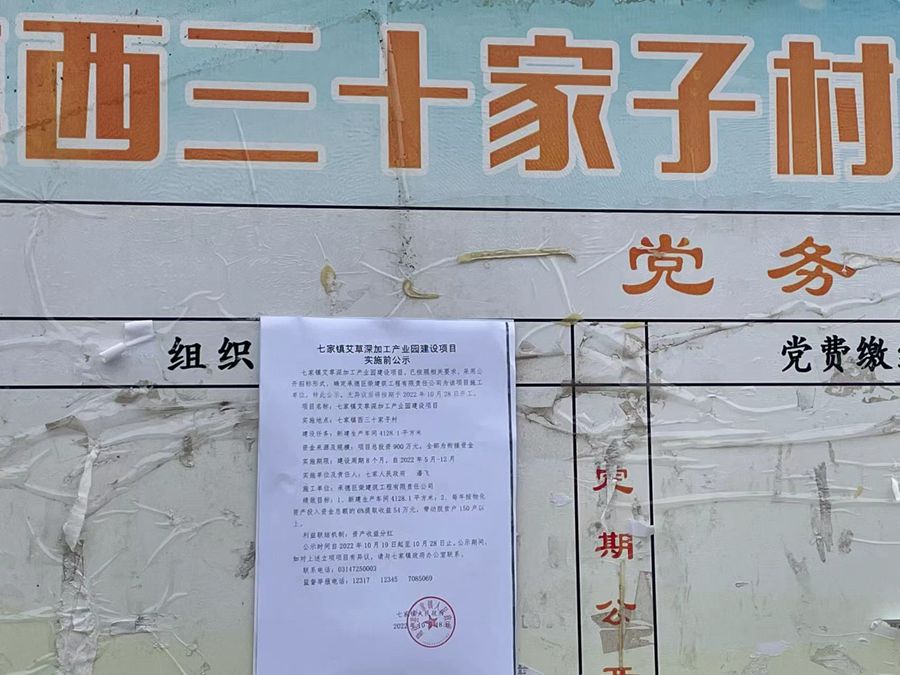 西三十家子村
党务
组织
党费缴
七家镇艾草深加工产业园建设项目
实施前公示
七家镇艾草深加工产业园建设项目，已按照相关要求，采用公
开招标形式，确定承德巨荣建筑工程有限责任公司为该项目施工
单位，特此公示。无异议后将按期于2022年10月28日开工。
项目名称：七家镇艾草深加工产业园建设项目
实施地点：七家镇西三十家子村
建设任务：新建生产车间4128.1平方米
资金来源及规模：项目总投资900万元，全部为衔接资金
实施期限：建设周期8个月，自2022年5月-12月
实施单位及责任人：七家人民政府 潘飞
施工单位：承德巨荣建筑工程有限责任公司
绩效目标：1、新建生产车间4128.1平方米；2、每年按物化
资产投入资金总额的6%提取收益54万元，带动脱贫户150户以
上。
利益联结机制：资产收益分红
公示时间自2022年10月19日起至10月28日止。公示期间，
如对上述立项项目有异议，请与七家镇政府办公室联系。
联系电话：03147250003
监督举报电话：12317 12345 7085069
七家镇人民政府
2022年10月18日
定
期
公